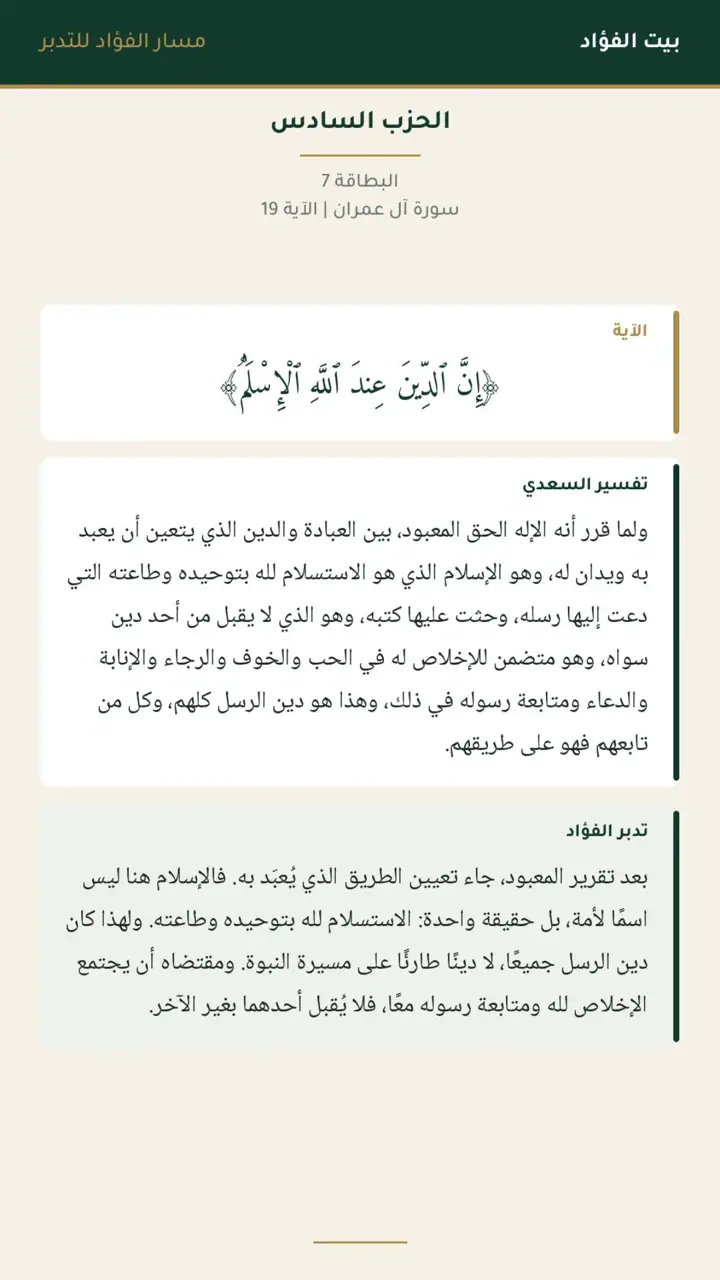 بيت الفؤاد
مسار الفؤاد للتدبر
الحزب السادس
البطاقة 7
سورة آل عمران | الآية 19
الآية
﴿إِنَّ ٱلدِّينَ عِندَ ٱللَّهِ ٱلْإِسْلَٰمُ﴾
تفسير السعدي
ولما قرر أنه الإله الحق المعبود، بين العبادة والدين الذي يتعين أن يعبد
به ويدان له، وهو الإسلام الذي هو الاستسلام لله بتوحيده وطاعته التي
دعت إليها رسله، وحثت عليها كتبه، وهو الذي لا يقبل من أحد دين
سواه، وهو متضمن للإخلاص له في الحب والخوف والرجاء والإنابة
والدعاء ومتابعة رسوله في ذلك، وهذا هو دين الرسل كلهم، وكل من
تابعهم فهو على طريقهم.
تدبر الفؤاد
بعد تقرير المعبود، جاء تعيين الطريق الذي يُعبَد به. فالإسلام هنا ليس
اسمًا لأمة، بل حقيقة واحدة: الاستسلام لله بتوحيده وطاعته. ولهذا كان
دين الرسل جميعًا، لا دينًا طارئًا على مسيرة النبوة. ومقتضاه أن يجتمع
الإخلاص لله ومتابعة رسوله معًا، فلا يُقبل أحدهما بغير الآخر.